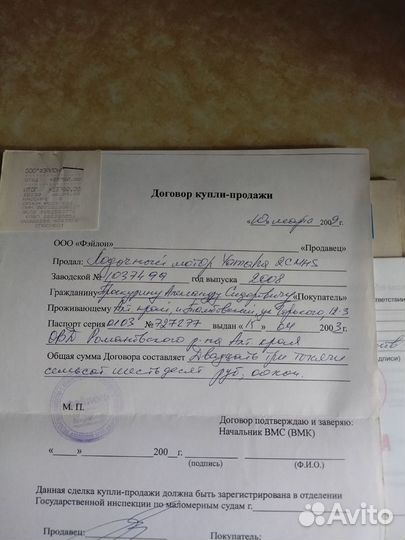 Договор купли-продажи
«10» марта 2009г.
ООО «Фэйлон» «Продавец»
Продал: Лодочный мотор Yamaha 2CMHS
Заводской № 1037499 год выпуска 2008
Гражданину Проскурину Александру «Покупатель»
Проживающему Алт край ул Горького
Паспорт серия 0103 № 727277 выдан «15» 04 2003г.
ОВД Романовского р-на Алт края
Общая сумма Договора составляет Двадцать три тысячи
семьсот шестьдесят руб, 00 коп.
М. П.
Договор подтверждаю и заверяю:
Начальник ВМС (ВМК)
«___» ______ 200__г.
(подпись) (Ф.И.О.)
Данная сделка купли-продажи должна быть зарегистрирована в отделении
Государственной инспекции по маломерным судам г.
Продавец: Покупатель:
Avito